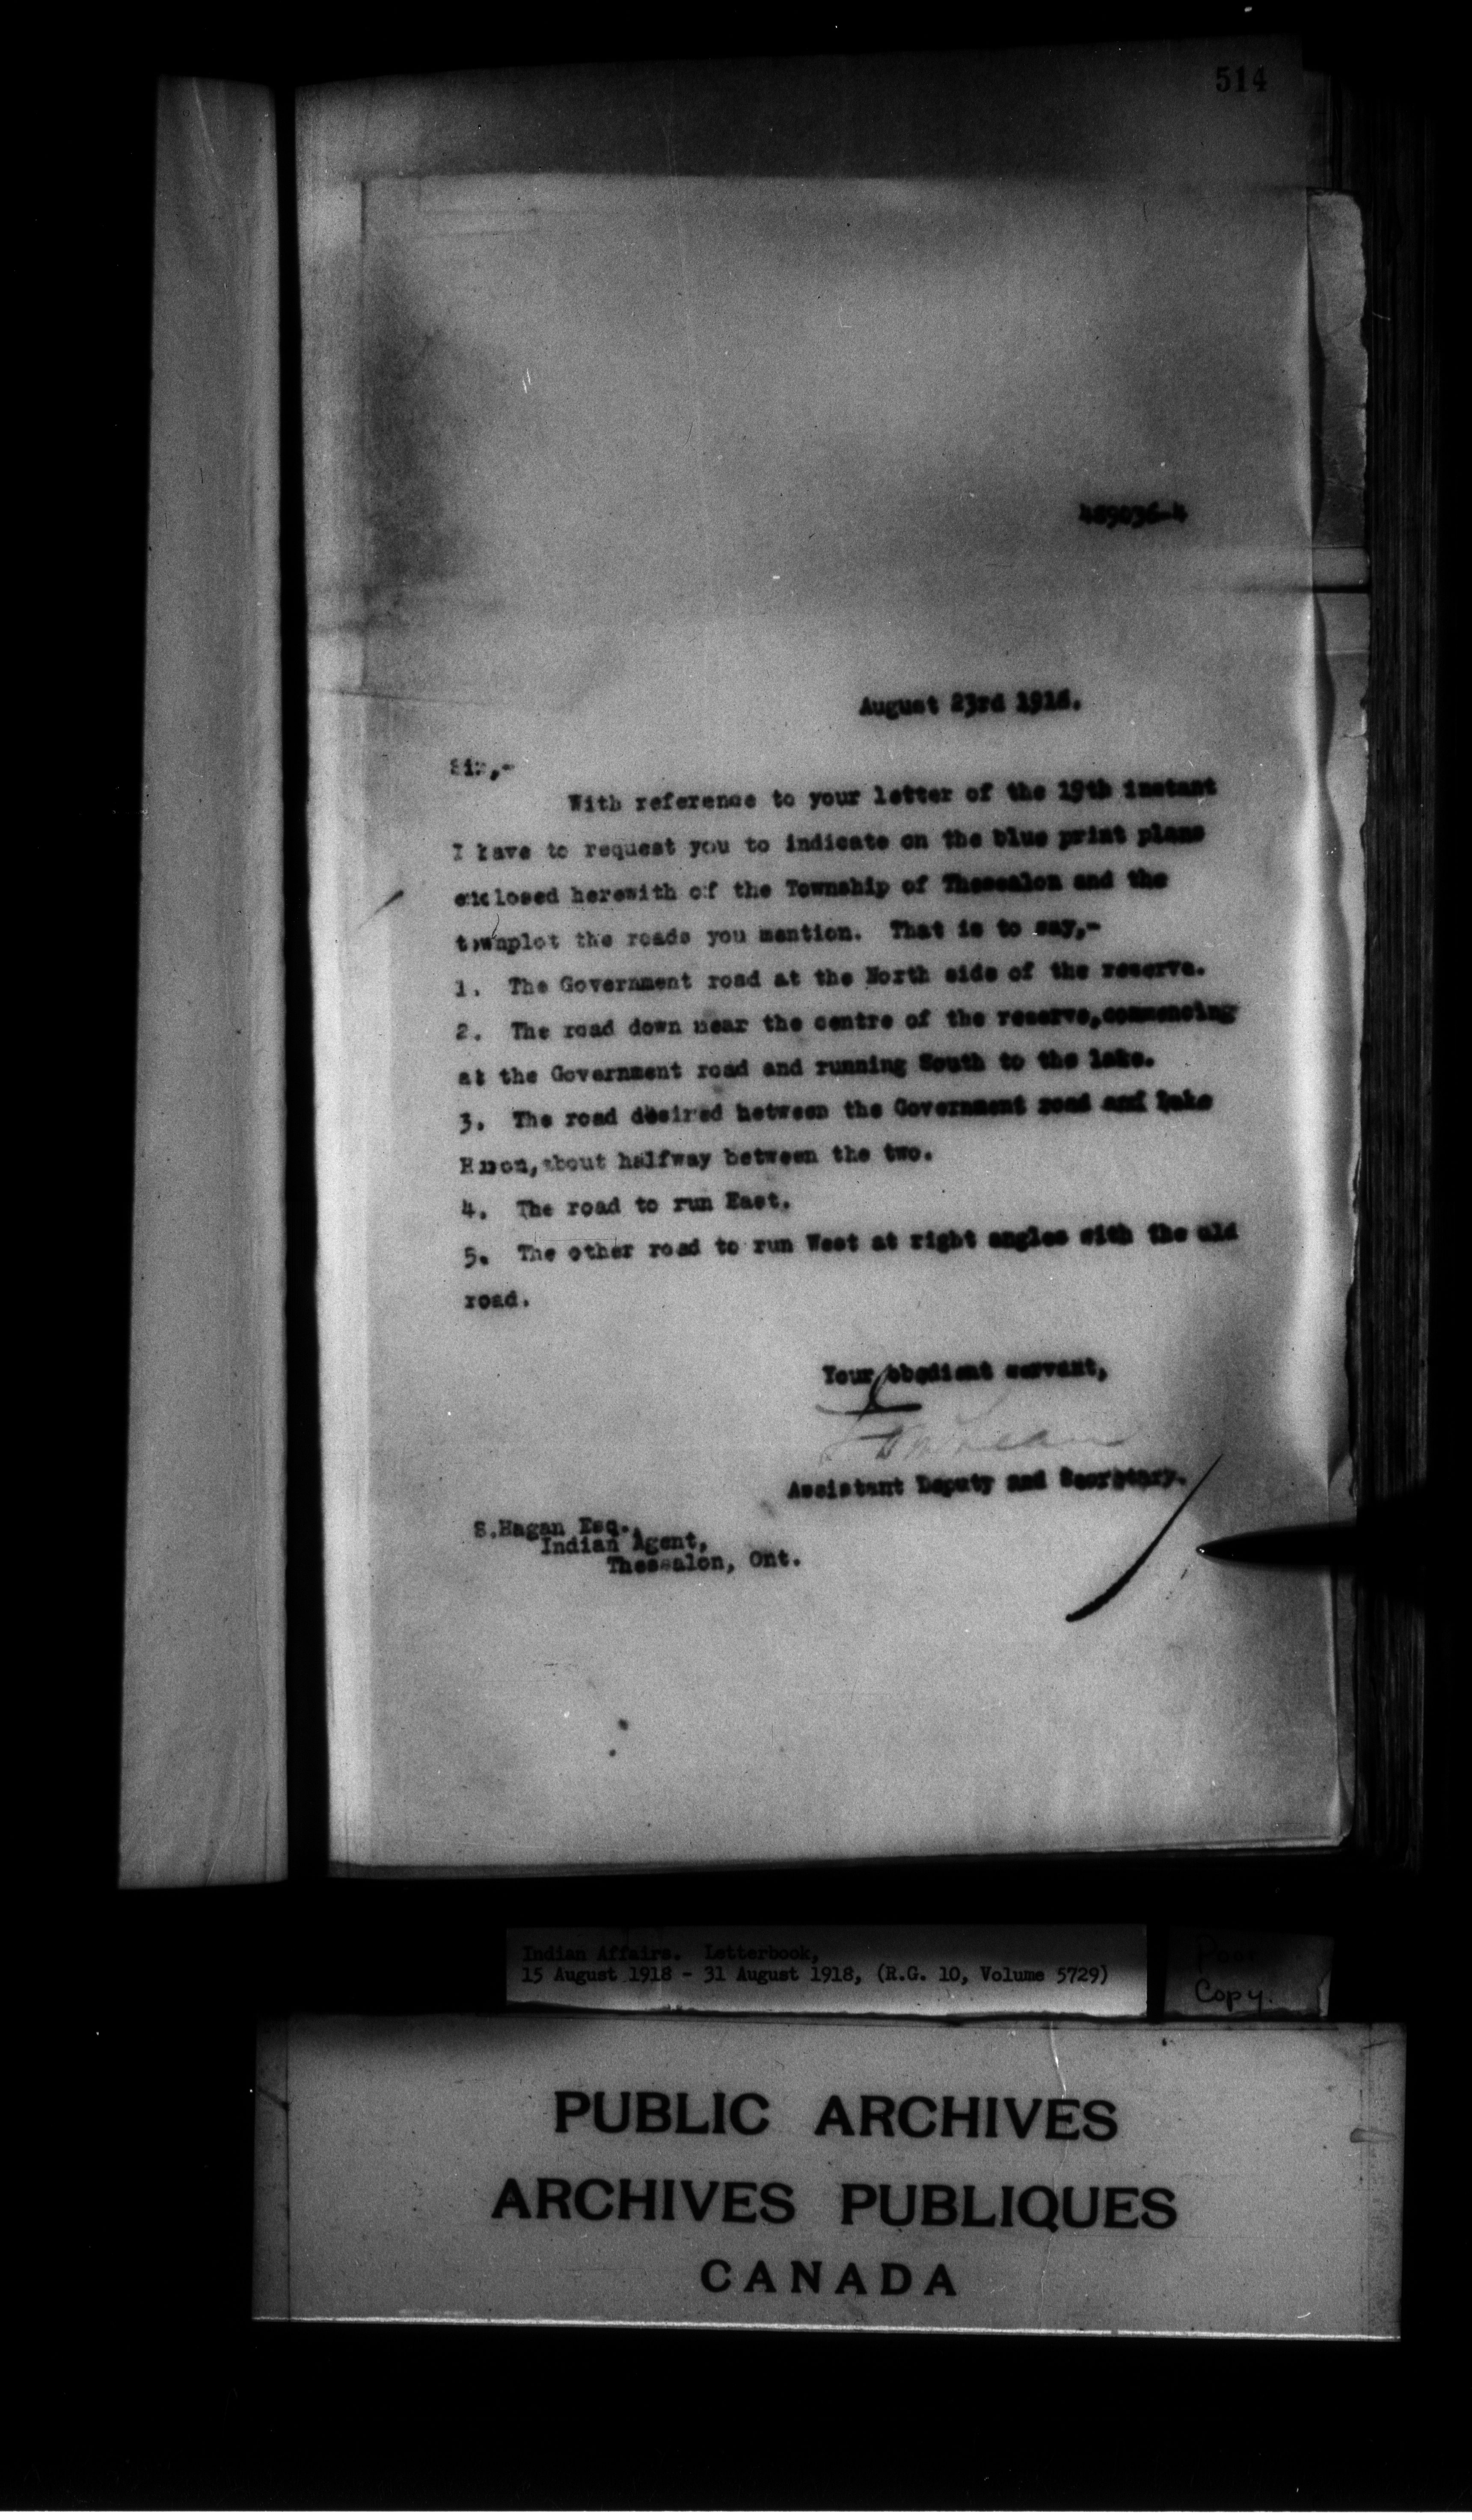 514
469036-4
August 23rd 1918.
Sir,-
With reference to your letter of the 19th instant
I have to request you to indicate on the blue print plans
enclosed herewith of the Township of Thessalon and the
townplot the roads you mention. That is to say,-
1. The Government road at the North side of the reserve.
2. The road down near the centre of the reserve,commencing
at the Government road and running South to the lake.
3. The road desired between the Government road and Lake
Huron,about halfway between the two.
4. The road to run East.
5. The other road to run West at right angles with the old
road.
Your obedient servant,
Assistant Deputy and Secretary.
S.Hagan Esq.,
Indian Agent,
Thessalon, Ont.
Indian Affairs. Letterbook,
15 August 1918 - 31 August 1918, (R.G. 10, Volume 5729)
Poor
Copy.
PUBLIC ARCHIVES
ARCHIVES PUBLIQUES
CANADA